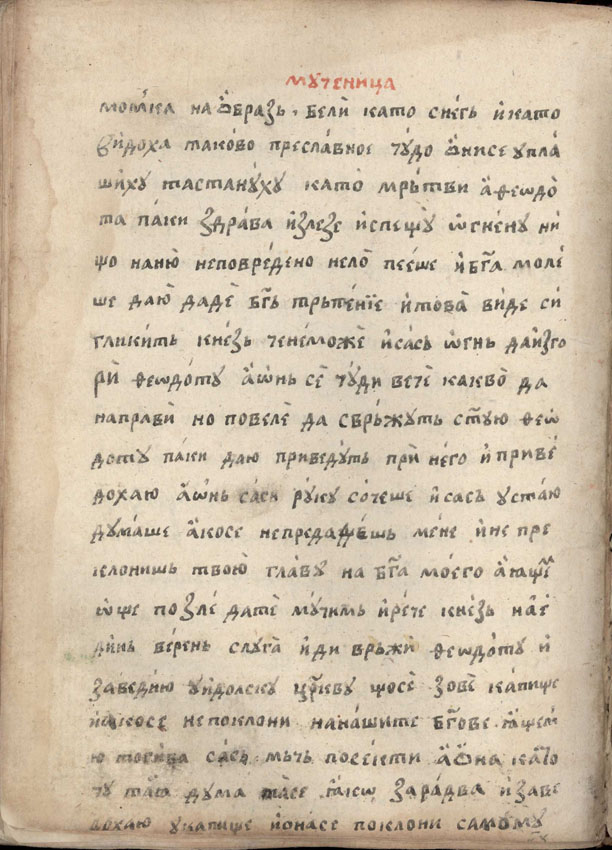 мꙋченица
момка на ѻ҆бразь, бели като снегь и҆като
ви́дохa таково преславное чꙋдо ѻ҆нисе ꙋпла
шихꙋ тастанꙋхꙋ като̀ мрьтви а҆ ѳеѡдо̀
та па́ки здра́ва и҆злезе и҆спещꙋ ѡ҆гненꙋ ни
що наню̀ неповре́дено нело̀ пее́ше и҆ бг҃а моле́
ше даю̀ дадѐ бг҃ь трьпе́нїе и҆това̀ ви́де си
гликить кне́зь ченемо́же и҆сась ѡ҆гнь даи҆зго
рѝ ѳеѡдо́тꙋ а҆ѡ҆нь се чꙋди вечѐ какво̀ да
направѝ но повелѐ да свръ́жꙋть ст҃ꙋю ѳеѡ
дотꙋ па́ки даю приведꙋ́ть при не́го и҆приве́
дохаю а҆ѡ҆нь саси рꙋкꙋ со́чеше и҆сась ꙋстаю
дꙋма́ше а҆косе непреда мене и҆не пре
клонишь твою̀ гла́вꙋ на бг҃а моего
ѡ҆ще позлѐ дате мꙋ́чимь и҆ре́че кне́зь на е҆
ди́нь ве́рень слꙋга̀ и҆ди врьжѝ ѳеѡдо́тꙋ и҆
заведи́ю ꙋи҆долскꙋ цр҃квꙋ щосѐ зовѐ ка́пище
и҆ а҆косе непоклони нана́шите бг҃ове
ю сась мьчь посекти а҆ѻ҆на
дꙋма зара́два и҆заве
дохаю ꙋкапище и҆ѻ҆насе поклони самомꙋ